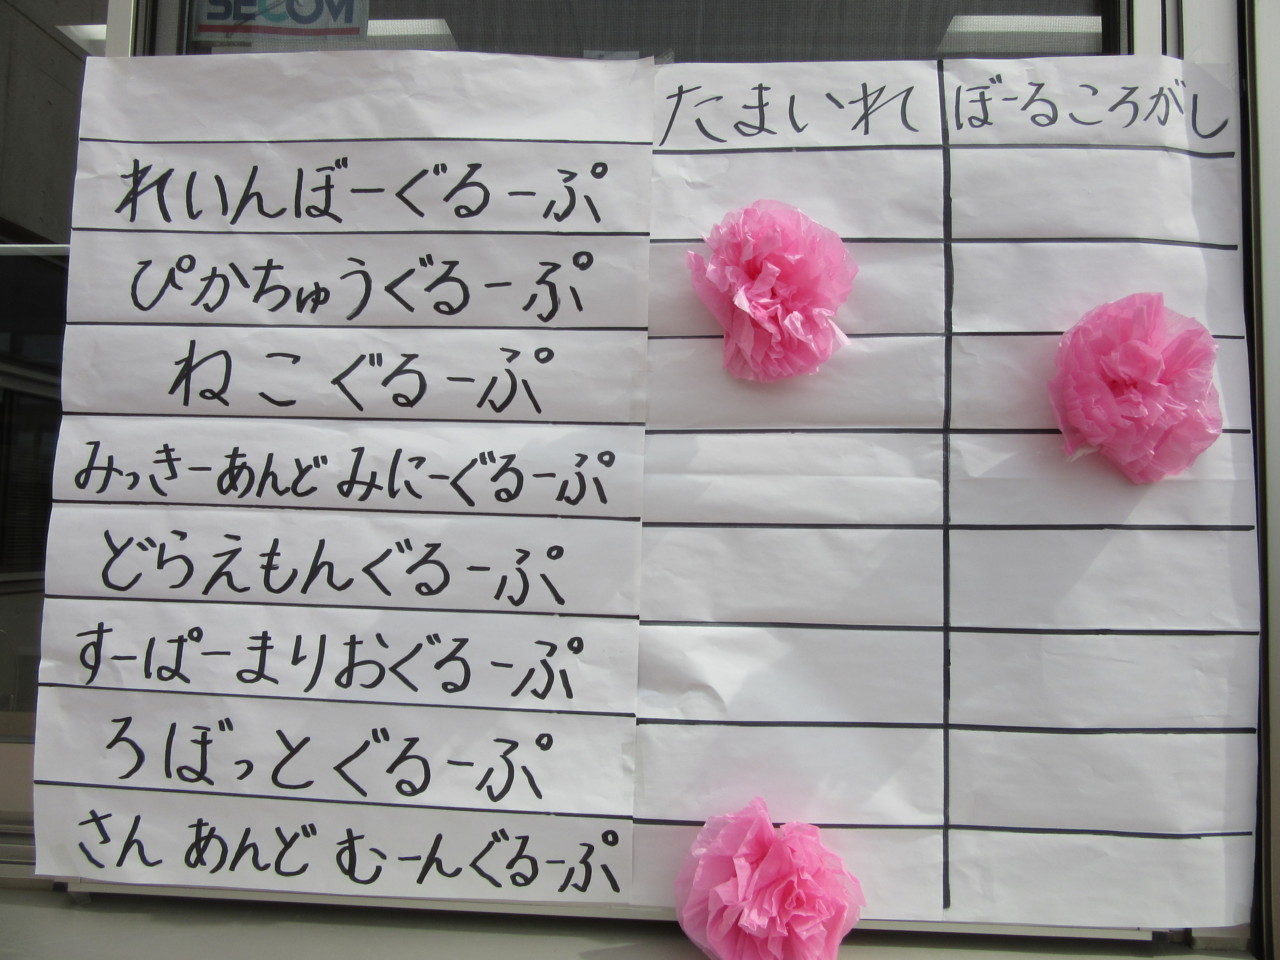 SECOM
たまいれ ぼーるころがし
れいんぼーぐるーぷ
ぴかちゅうぐるーぷ
ねこぐるーぷ
みっきーあんどみにーぐるーぷ
どらえもんぐるーぷ
すーぱーまりおぐるーぷ
ろぼっとぐるーぷ
さんあんどむーんぐるーぷ